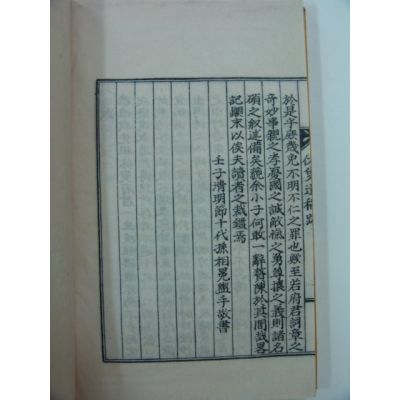 遺稿跋
於是乎庶幾免不明不仁之罪也歟至若府君詞章之
奇妙事親之孝憂國之誠敵愾之勇尊攘之義則諸名
碩之叙述備矣藐余小子何敢一辭贅陳於其間哉畧
記顚末以俟夫讀者之裁鑑焉
壬子清明節十代孫相冕盥手敬書